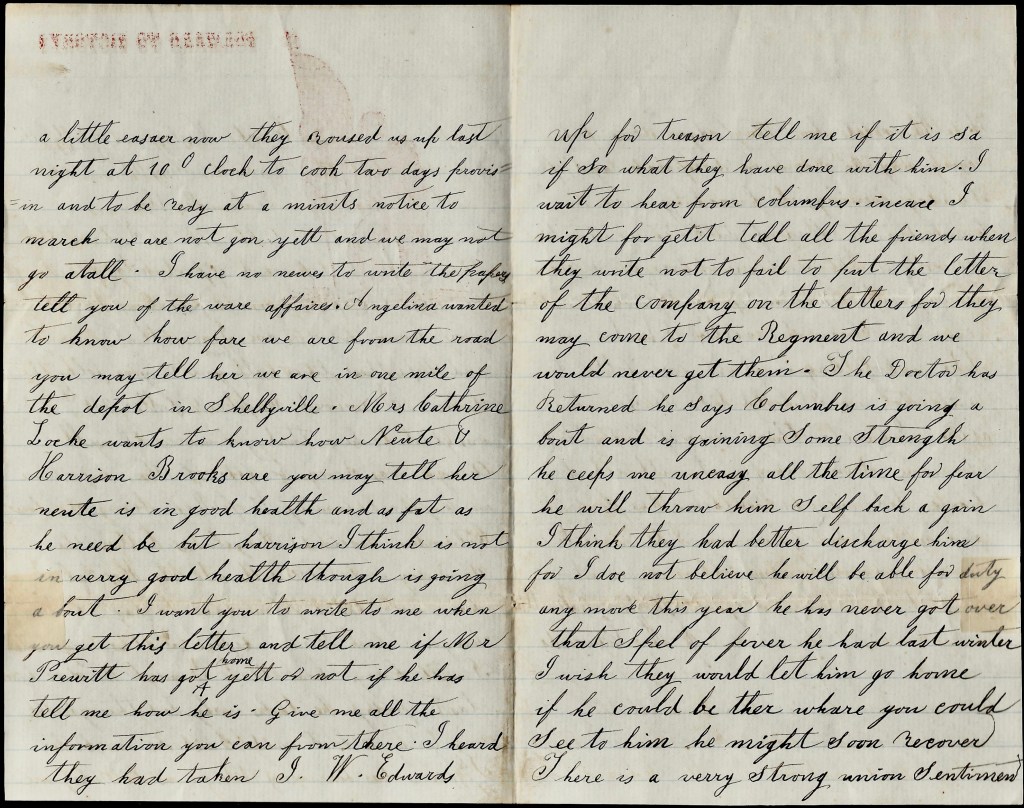 ONWARD TO VICTORY!
a little easaer now they Roused us up last
night at 10 O Clock to cook two days provis=
=in and to be redy at a minits notice to
march we are not gon yett and we may not
go atall. I have no newes to write the papers
tell you of the ware affaires. Angelina wanted
to know how fare we are from the road
you may tell her we are in one mile of
the depot in Shelbyville. Mrs Cathrine
Locke wants to know how Neute &
Harrison Brooks are you may tell her
neute is in good health and as fat as
he need be but harrison I think is not
in verry good health though is going
a bout. I want you to write to me when
you get this letter and tell me if Mr
Prewitt has got home yett or not if he has
tell me how he is. Give me all the
information you can from there. I heard
they had taken J. W. Edwards
Up for treason tell me if it is so
if so what they have done with him. I
wait to hear from columbus. incace I
might for getit tell all the friends when
they write not to fail to put the letter
of the company on the letters for they
may come to the Regment and we
would never get them. The Doctor has
Returned he says Columbus is going a
bout and is gaining some strength
he ceeps me uneasy all the time for fear
he will throw him Self back a gain
I think they had better discharge him
for I doe not believe he will be able for duty
any more this year he has never got over
that spel of fever he had last winter
I wish they would let him go home
if he could be ther whare you could
See to him he might soon recover
There is a verry strong union Sentimen